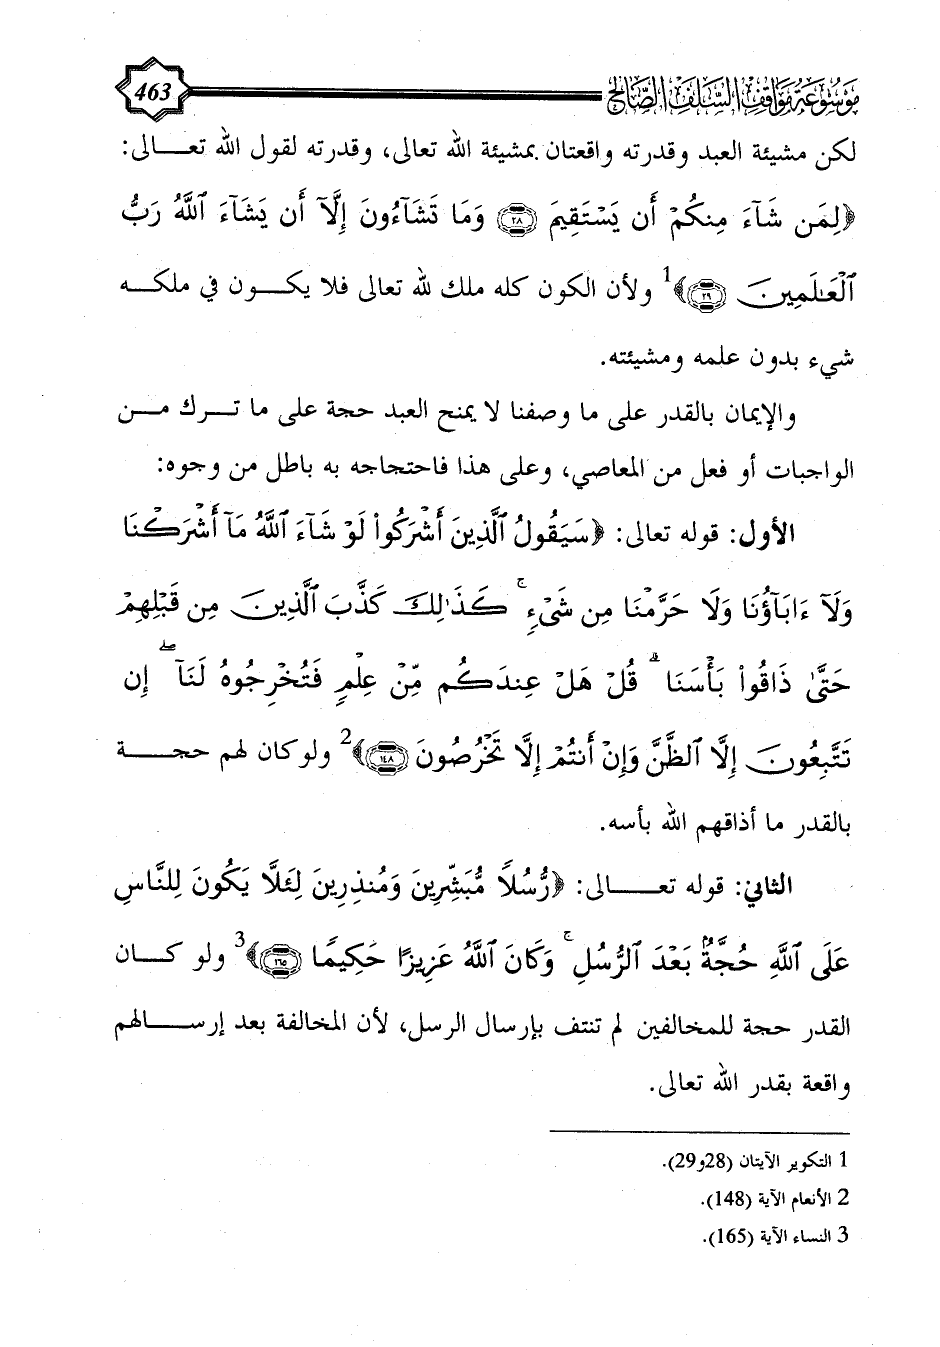 463
موسوعة مواقف السلف الصالح
لكن مشيئة العبد وقدرته واقعتان بمشيئة الله تعالى، وقدرته لقول الله تعالى:
﴿لِمَن شَآءَ مِنكُمْ أَن يَسْتَقِيمَ ۝٢٨ وَمَا تَشَآءُونَ إِلَّآ أَن يَشَآءَ ٱللَّهُ رَبُّ
ٱلْعَـٰلَمِينَ ۝٢٩﴾1 ولأن الكون كله ملك لله تعالى فلا يكون في ملكه
شيء بدون علمه ومشيئته.
والإيمان بالقدر على ما وصفنا لا يمنح العبد حجة على ما ترك من
الواجبات أو فعل من المعاصي، وعلى هذا فاحتجاجه به باطل من وجوه:
الأول: قوله تعالى: ﴿سَيَقُولُ ٱلَّذِينَ أَشْرَكُوا۟ لَوْ شَآءَ ٱللَّهُ مَآ أَشْرَكْنَا
وَلَآ ءَابَآؤُنَا وَلَا حَرَّمْنَا مِن شَىْءٍ ۚ كَذَٰلِكَ كَذَّبَ ٱلَّذِينَ مِن قَبْلِهِمْ
حَتَّىٰ ذَاقُوا۟ بَأْسَنَا ۗ قُلْ هَلْ عِندَكُم مِّنْ عِلْمٍ فَتُخْرِجُوهُ لَنَآ ۖ إِن
تَتَّبِعُونَ إِلَّا ٱلظَّنَّ وَإِنْ أَنتُمْ إِلَّا تَخْرُصُونَ ۝١٤٨﴾2 ولو كان لهم حجة
بالقدر ما أذاقهم الله بأسه.
الثاني: قوله تعالى: ﴿رُّسُلًا مُّبَشِّرِينَ وَمُنذِرِينَ لِئَلَّا يَكُونَ لِلنَّاسِ
عَلَى ٱللَّهِ حُجَّةٌۢ بَعْدَ ٱلرُّسُلِ ۚ وَكَانَ ٱللَّهُ عَزِيزًا حَكِيمًا ۝١٦٥﴾3 ولو كان
القدر حجة للمخالفين لم تنتف بإرسال الرسل، لأن المخالفة بعد إرسالهم
واقعة بقدر الله تعالى.
1 التكوير الآيتان (28و29).
2 الأنعام الآية (148).
3 النساء الآية (165).